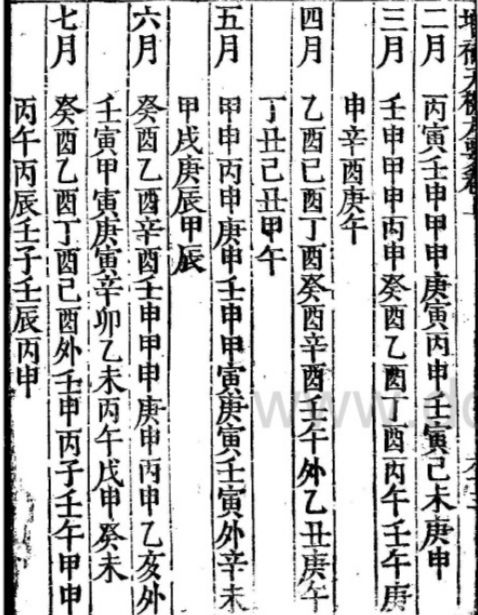 二月 丙寅壬申甲申庚寅丙申壬寅己未庚申
三月 壬申甲申丙申癸酉乙酉丁酉丙午壬午庚
申辛酉庚午
四月 乙酉己酉丁酉癸酉辛酉壬午外乙丑庚午
丁丑己丑甲午
五月 甲申丙申庚申壬申甲寅庚寅壬寅外辛未
甲戌庚辰甲辰
六月 癸酉乙酉辛酉壬申甲申庚申丙申乙亥外
壬寅甲寅庚寅辛卯乙未丙午戊申癸未
七月 癸酉乙酉丁酉己酉外壬申丙子壬午甲申
丙午丙辰壬子壬辰丙申